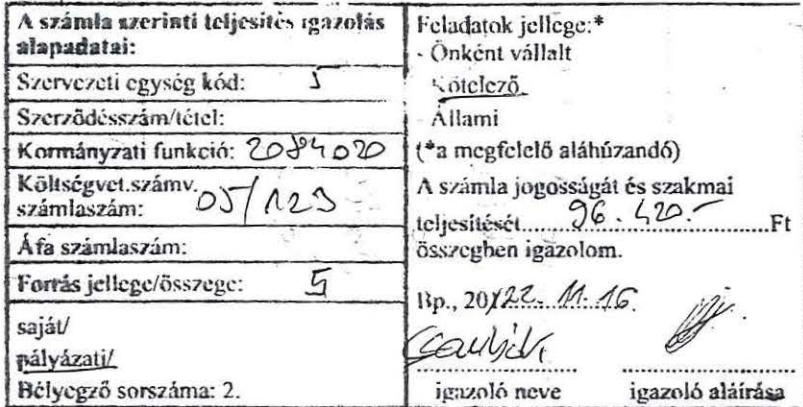 A számla szerinti teljesítés igazolás
alapadatai:
Szervezeti egység kód: 5
Szerződésszám/tétel:
Kormányzati funkció: 2084020
Költségvet.számv.
számlaszám: 05/123
Áfa számlaszám:
Forrás jellege/összege: 5
saját/
pályázati/
Bélyegző sorszáma: 2.
Feladatok jellege:*
- Önként vállalt
Kötelező
Állami
(*a megfelelő aláhúzandó)
A számla jogosságát és szakmai
teljesítését 96.420.- Ft
összegben igazolom.
Bp., 2022. 11. 16.
igazoló neve igazoló aláírása